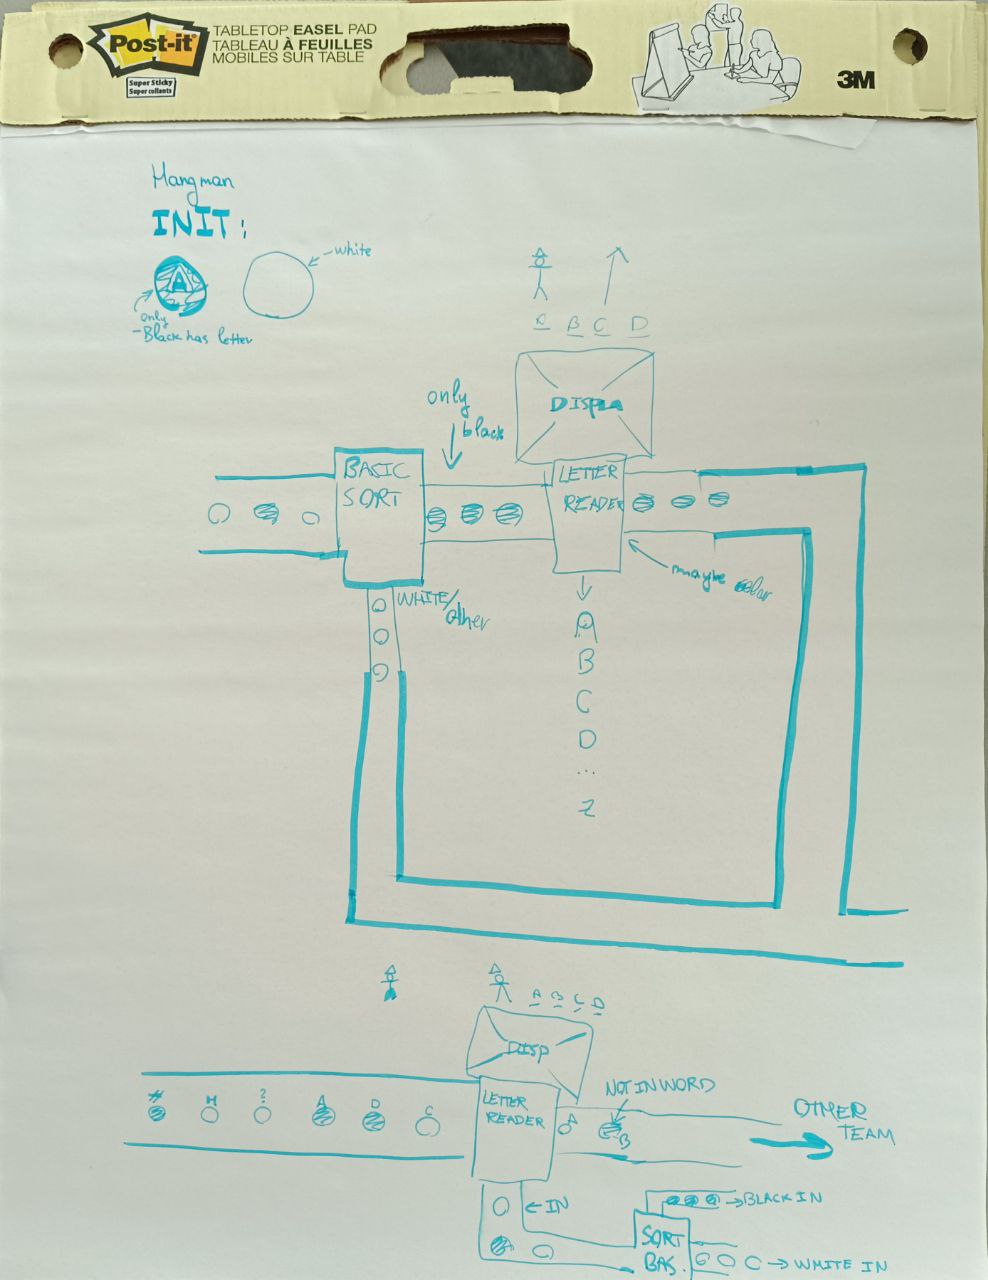 Post-it
Super Sticky
Super collants
TABLETOP EASEL PAD
TABLEAU À FEUILLES
MOBILES SUR TABLE
3M
Hangman
INIT:
A
white
only
-Black has letter
A B C D
DISPLA
only
black
BASIC
SORT
LETTER
READER
maybe color
WHITE/
other
A
B
C
D
...
Z
A B C D
DISP
NOT IN WORD
# H ? A D C
LETTER
READER
A
B
OTHER
TEAM
IN
BLACK IN
SORT
BAS.
WHITE IN